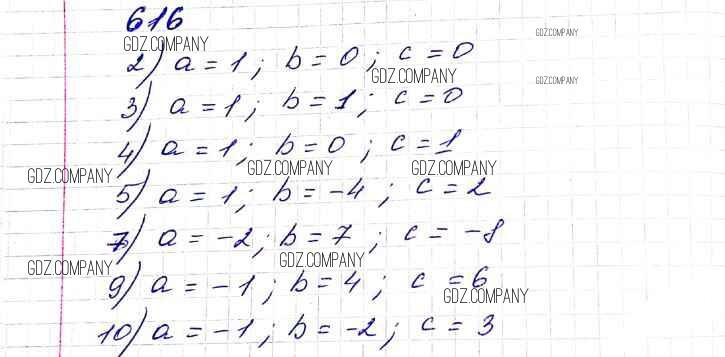 616
GDZ.COMPANY
GDZ.COMPANY
2) a = 1 ; b = 0 ; c = 0
GDZ.COMPANY
GDZ.COMPANY
3) a = 1 ; b = 1 ; c = 0
4) a = 1 ; b = 0 ; c = 1
GDZ.COMPANY
GDZ.COMPANY
GDZ.COMPANY
5) a = 1 ; b = -4 ; c = 2
7) a = -2 ; b = 7 ; c = -8
GDZ.COMPANY
GDZ.COMPANY
9) a = -1 ; b = 4 ; c = 6
GDZ.COMPANY
10) a = -1 ; b = -2 ; c = 3